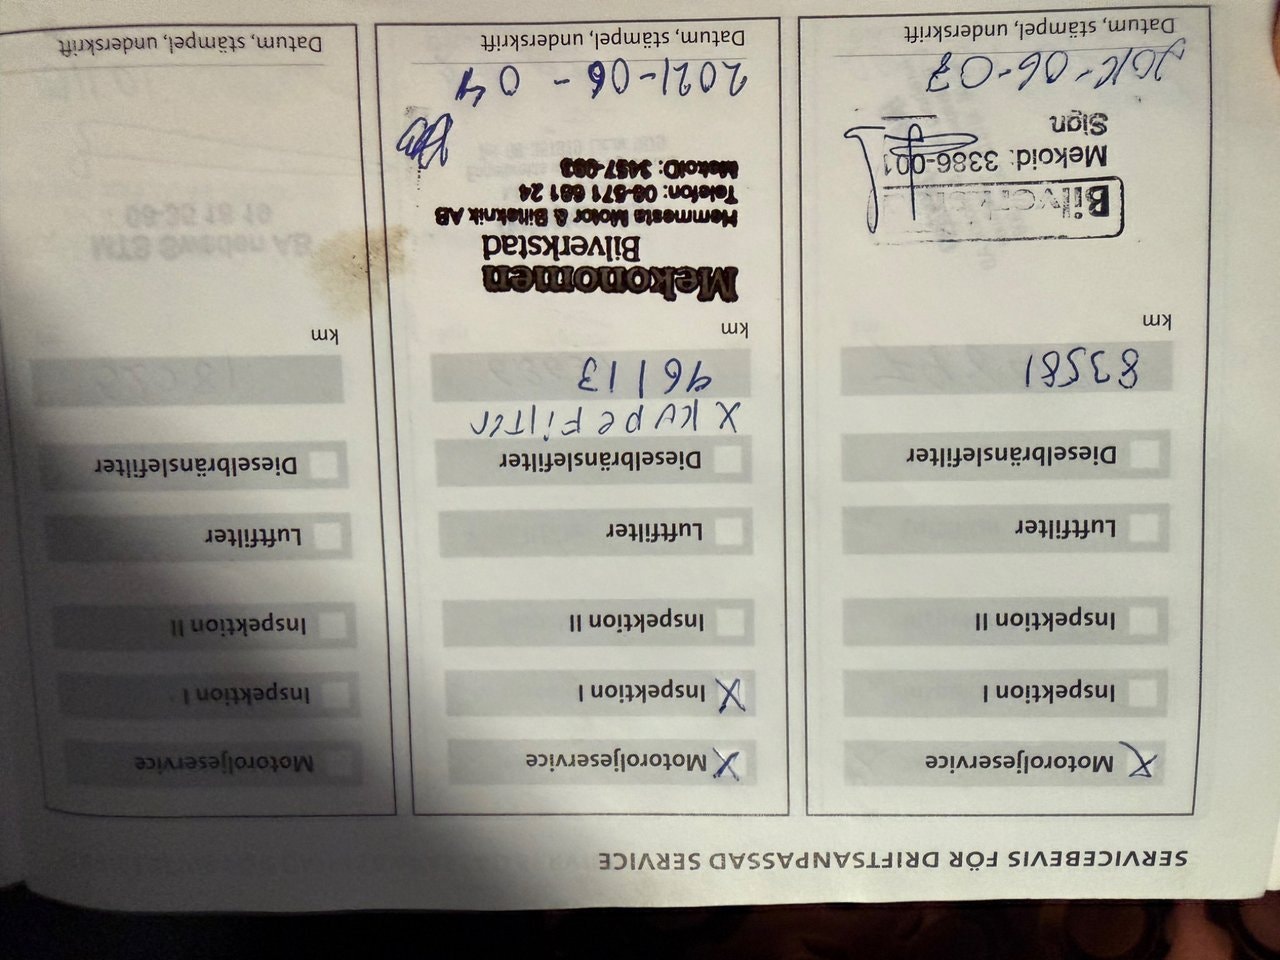 SERVICEBEVIS FÖR DRIFTSANPASSAD SERVICE
Motoroljeservice
Inspektion I
Inspektion II
Luftfilter
Dieselbränslefilter
83581
km
Mekoid: 3386-001
Sign
Datum, stämpel, underskrift
Motoroljeservice
Inspektion I
Inspektion II
Luftfilter
Dieselbränslefilter
x kupeFilter
96113
km
Mekonomen
Bilverkstad
Hemmesta Motor & Bilteknik AB
Telefon: 08-571 681 24
MekoID:
2021-06-04
Datum, stämpel, underskrift
Motoroljeservice
Inspektion I
Inspektion II
Luftfilter
Dieselbränslefilter
km
Datum, stämpel, underskrift